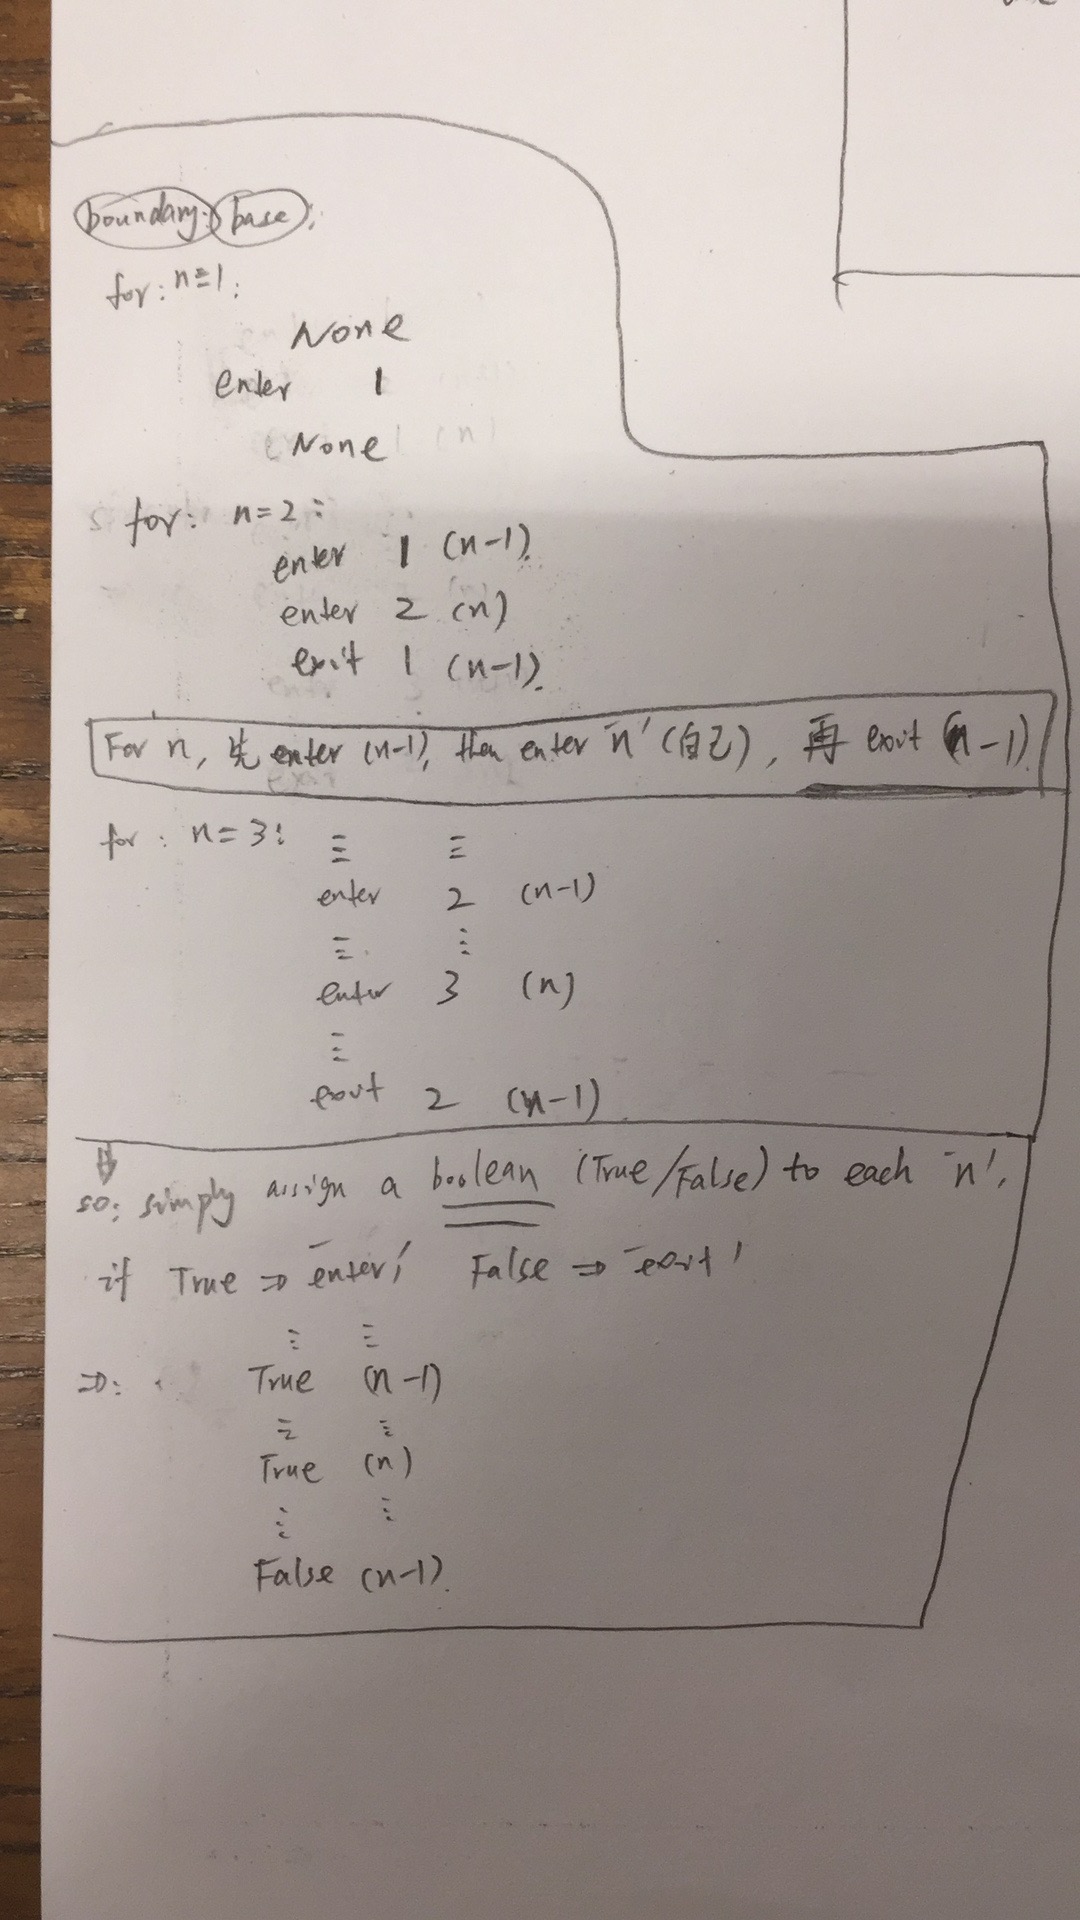 boundary: base:
for: n=1:
None
enter 1
None
for: n=2:
enter 1 (n-1).
enter 2 (n)
exit 1 (n-1).
For n, 先 enter (n-1), then enter "n" (自己), 再 exit (n-1).
for: n=3:
enter 2 (n-1)
enter 3 (n)
exit 2 (n-1)
so: simply assign a boolean (True/False) to each "n",
if True ⇒ "enter" False ⇒ "exit"
⇒: True (n-1)
True (n)
False (n-1).